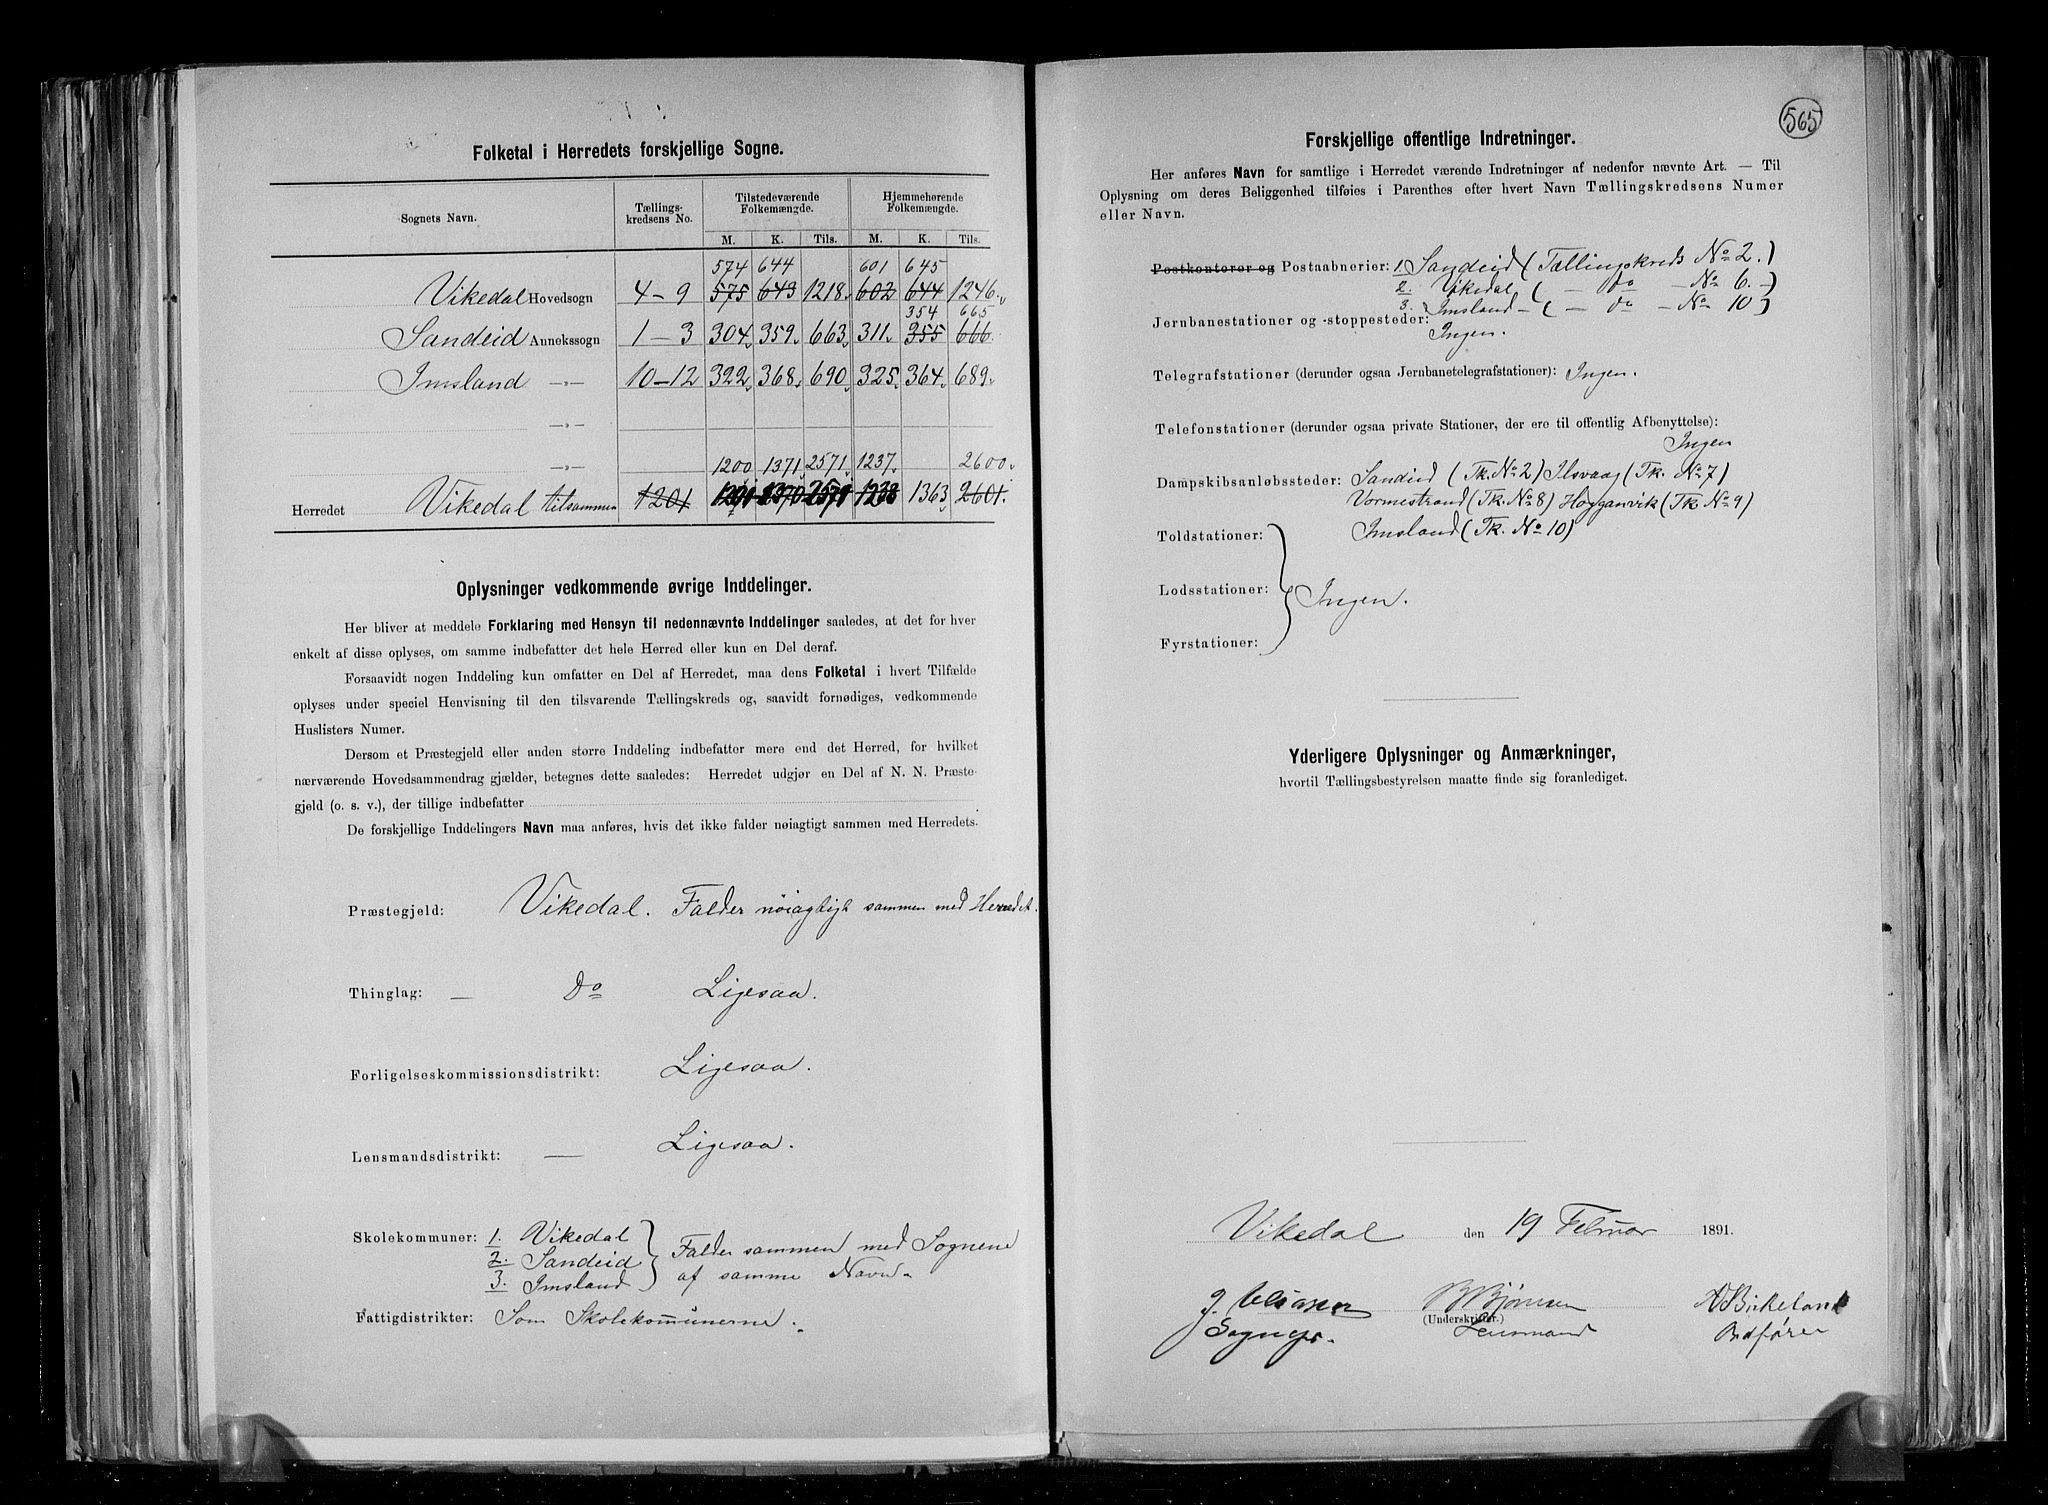 Folketal i Herredets forskjellige Sogne.
Sognets Navn. Tællings-kredsens No. Tilstedeværende Folkemængde. Hjemmehørende Folkemængde.
M. K. Tils. M. K. Tils.
574 644 601 645
Vikedal Hovedsogn 4-9 575 643 1218 602 644 1246
354 665
Sandeid Annekssogn 1-3 304 359 663 311 355 666
Imsland —»— 10-12 322 368 690 325 364 689
—»—
—»— 1200 1371 2571 1237 2600
Herredet Vikedal tilsammen 1201 1201 1370 2571 1238 1363 2601
Oplysninger vedkommende øvrige Inddelinger.
Her bliver at meddele Forklaring med Hensyn til nedennævnte Inddelinger saaledes, at det for hver
enkelt af disse oplyses, om samme indbefatter det hele Herred eller kun en Del deraf.
Forsaavidt nogen Inddeling kun omfatter en Del af Herredet, maa dens Folketal i hvert Tilfælde
oplyses under speciel Henvisning til den tilsvarende Tællingskreds og, saavidt fornødiges, vedkommende
Huslisters Numer.
Dersom et Præstegjeld eller anden større Inddeling indbefatter mere end det Herred, for hvilket
nærværende Hovedsammendrag gjælder, betegnes dette saaledes: Herredet udgjør en Del af N. N. Præste-
gjeld (o. s. v.), der tillige indbefatter
De forskjellige Inddelingers Navn maa anføres, hvis det ikke falder nøiagtigt sammen med Herredets.
Præstegjeld: Vikedal. Falder nöiagtigt sammen med Herredet.
Thinglag: — Do Ligesaa.
Forligelseskommissionsdistrikt: Ligesaa.
Lensmandsdistrikt: — Ligesaa.
Skolekommuner: 1. Vikedal
2. Sandeid } Falder sammen med Sognene
3. Imsland af samme Navn.
Fattigdistrikter: Som Skolekommunerne.
565
Forskjellige offentlige Indretninger.
Her anføres Navn for samtlige i Herredet værende Indretninger af nedenfor nævnte Art. — Til
Oplysning om deres Beliggenhed tilføies i Parenthes efter hvert Navn Tællingskredsens Numer
eller Navn.
Postkontorer og Postaabnerier: 1. Sandeid (Tællingskreds No 2.)
2. Vikedal (— do — No 6.—)
3. Imsland — (— do — No 10)
Jernbanestationer og -stoppesteder:
Ingen.
Telegrafstationer (derunder ogsaa Jernbanetelegrafstationer): Ingen.
Telefonstationer (derunder ogsaa private Stationer, der ere til offentlig Afbenyttelse):
Ingen
Dampskibsanløbssteder: Sandeid (Tk. No 2) Ilsvaag (Tk. No 7)
Vormestrand (Tk. No 8) Hogganvik (Tk No 9)
Imsland (Tk. No 10)
Toldstationer:
Lodsstationer: } Ingen.
Fyrstationer:
Yderligere Oplysninger og Anmærkninger,
hvortil Tællingsbestyrelsen maatte finde sig foranlediget.
Vikedal den 19 Februar 1891.
J. B Bjönsen A Birkeland
(Underskrifter.)
Sognepr. Lensmand Ordförer